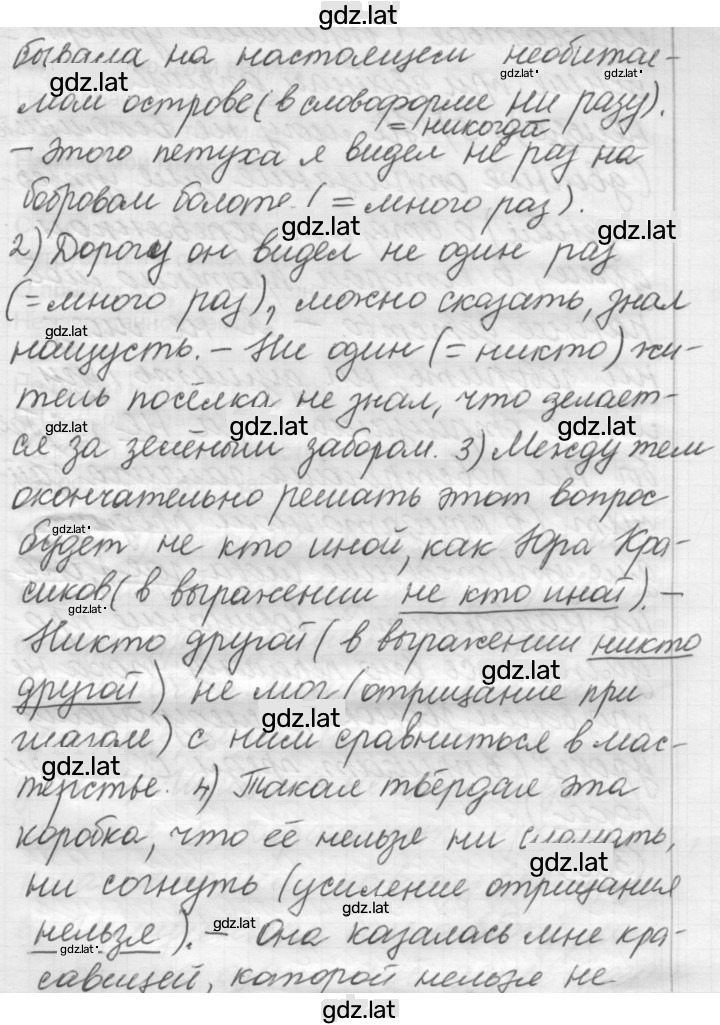 gdz.lat
бывала на настоящем необитае-
gdz.lat gdz.lat gdz.lat
мом острове (в словоформе ни разу).
= никогда
– Этого петуха я видел не раз на
бобровом болоте. (= много раз).
gdz.lat gdz.lat
2) Дорогу он видел не один раз
(= много раз), можно сказать, знал
gdz.lat
наизусть. – Ни один (= никто) жи-
тель посёлка не знал, что делает-
gdz.lat gdz.lat gdz.lat
ся за зелёным забором. 3) Между тем
окончательно решать этот вопрос
gdz.lat
будет не кто иной, как Юра Кра-
сиков (в выражении не кто иной). –
gdz.lat
Никто другой (в выражении никто
gdz.lat
другой) не мог (отрицание при
gdz.lat
глаголе) с ним сравниться в мас-
gdz.lat
терстве. 4) Такая твёрдая эта
коробка, что её нельзя ни сломать,
gdz.lat
ни согнуть (усиление отрицания
gdz.lat gdz.lat
нельзя). – Она казалась мне кра-
gdz.lat
савицей, которой нельзя не
gdz.lat